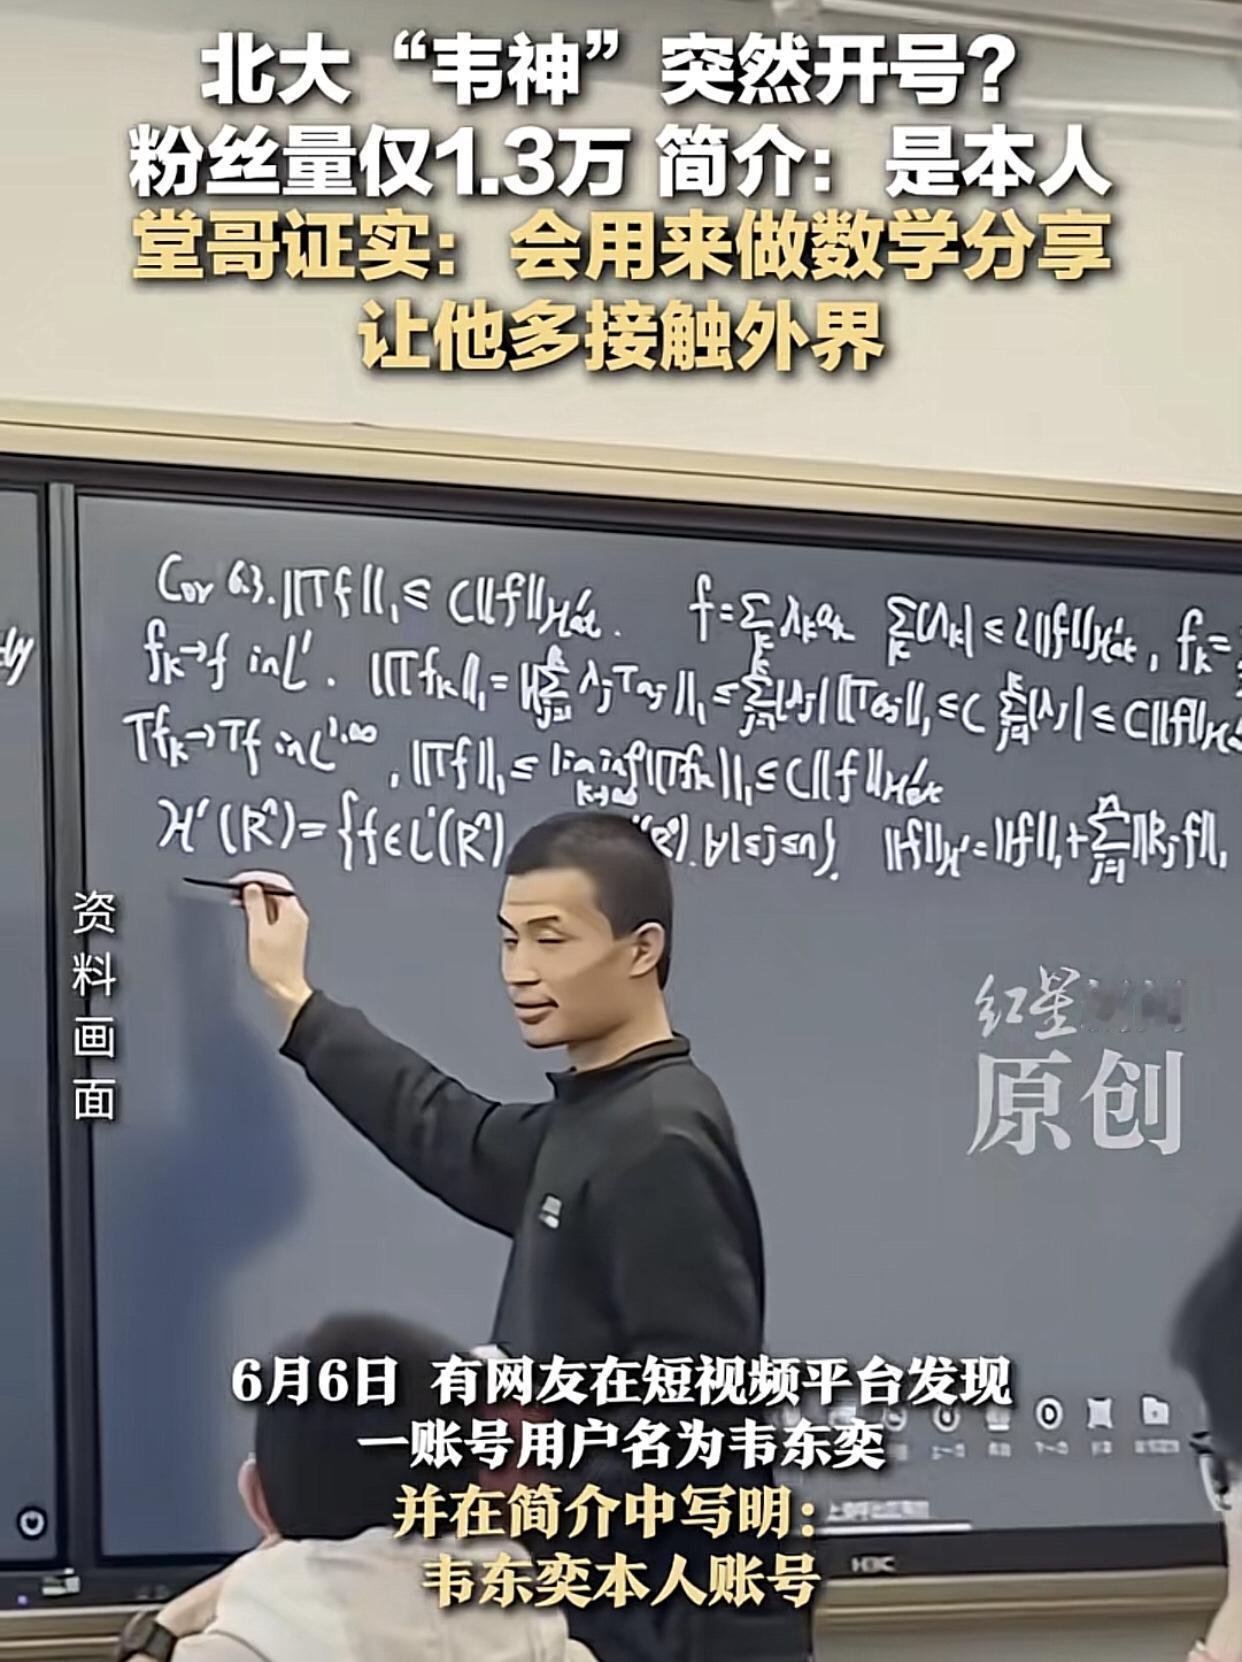 北大“韦神”突然开号？
粉丝量仅1.3万 简介：是本人
堂哥证实：会用来做数学分享
让他多接触外界
Cor 6.3. ||Tf||₁ ≤ C||f||_{H¹at}. f = Σ_k λ_k a_k Σ_k |λ_k| ≤ 2||f||_{H¹at}, f_k =
f_k → f in L¹. ||Tf_k||₁ = ||Σ_{j=1}^k λ_j T a_j||₁ ≤ Σ_{j=1}^k |λ_j| ||T a_j||₁ ≤ C Σ_{j=1}^k |λ_j| ≤ C||f||
Tf_k → Tf in L^{1,∞}, ||Tf||₁ ≤ liminf_{k→∞} ||Tf_k||₁ ≤ C||f||_{H¹at}
H¹(Rⁿ) = {f ∈ L¹(Rⁿ) ∀ 1≤j≤n}. ||f||_{H¹} = ||f||₁ + Σ_{j=1}^n ||R_j f||₁
资料画面
红星
原创
6月6日 有网友在短视频平台发现
一账号用户名为韦东奕
并在简介中写明：
韦东奕本人账号